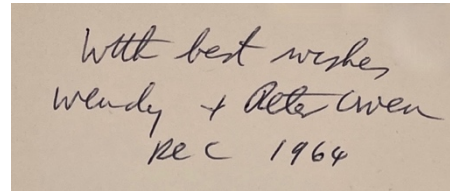 With best wishes
Wendy + Peter Owen
Dec 1964